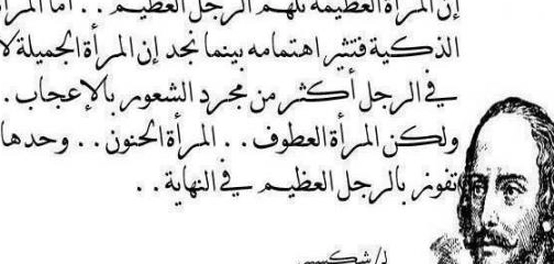 إن المرأة العظيمة تلهم الرجل العظيم . . أما المرأة
الذكية فتثير اهتمامه بينما نجد إن المرأة الجميلة لا
في الرجل أكثر من مجرد الشعور بالإعجاب .
ولكن المرأة العطوف . . المرأة الحنون . . وحدها
تفوز بالرجل العظيم في النهاية . .
شكسبير